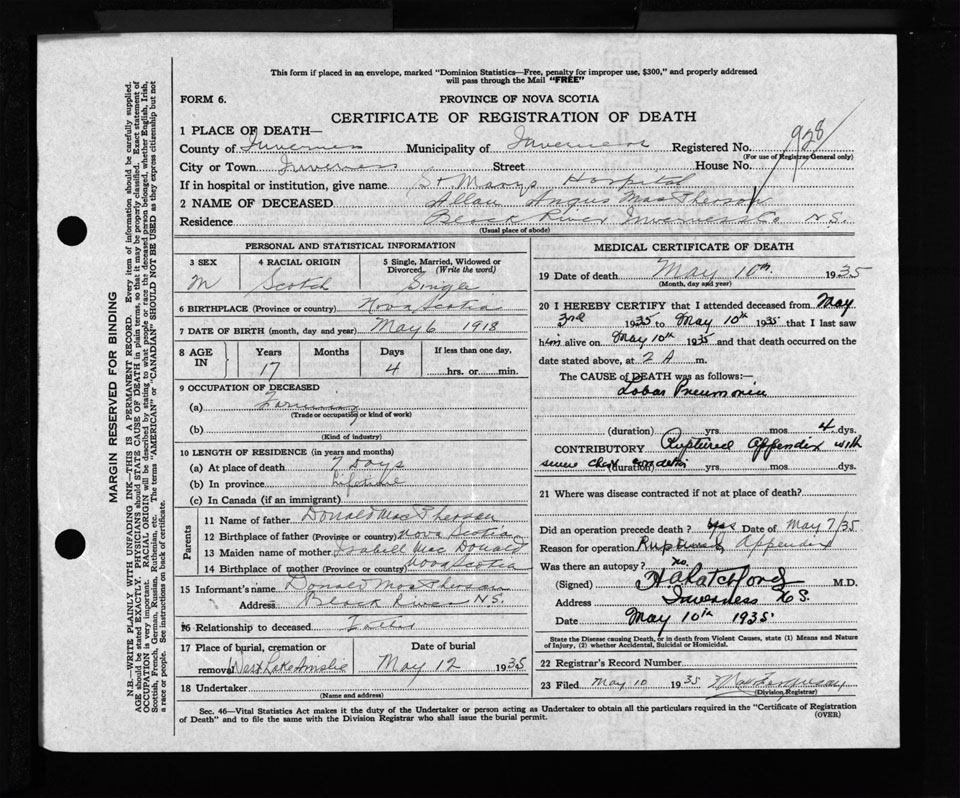 This form if placed in an envelope, marked "Dominion Statistics—Free, penalty for improper use, $300," and properly addressed
will pass through the Mail "FREE"
FORM 6.
PROVINCE OF NOVA SCOTIA
CERTIFICATE OF REGISTRATION OF DEATH
1 PLACE OF DEATH—
928
County of Inverness Municipality of Inverness Registered No.
(For use of Registrar-General only)
City or Town Inverness Street House No.
If in hospital or institution, give name St Marys Hospital
2 NAME OF DECEASED Allan Angus MacPherson
Residence Black River Inverness Co N.S.
(Usual place of abode)
PERSONAL AND STATISTICAL INFORMATION
3 SEX 4 RACIAL ORIGIN 5 Single, Married, Widowed or Divorced. (Write the word)
M Scotch Single
6 BIRTHPLACE (Province or country) Nova Scotia
7 DATE OF BIRTH (month, day and year) May 6 1918
8 AGE IN Years Months Days If less than one day,
17 4 hrs. or min.
9 OCCUPATION OF DECEASED
(a) Farming
(Trade or occupation or kind of work)
(b)
(Kind of industry)
10 LENGTH OF RESIDENCE (in years and months)
(a) At place of death 7 Days
(b) In province Lifetime
(c) In Canada (if an immigrant)
Parents
11 Name of father Donald MacPherson
12 Birthplace of father (Province or country) Nova Scotia
13 Maiden name of mother Isabell MacDonald
14 Birthplace of mother (Province or country) Nova Scotia
15 Informant's name Donald MacPherson
Address Black River N.S.
16 Relationship to deceased Father
17 Place of burial, cremation or removal West Lake Ainslie Date of burial May 12 1935
18 Undertaker
(Name and address)
MEDICAL CERTIFICATE OF DEATH
19 Date of death May 10th 1935
(Month, day and year)
20 I HEREBY CERTIFY that I attended deceased from May
3rd 1935 to May 10th 1935 that I last saw
him alive on May 10th 1935 and that death occurred on the
date stated above, at 2 A m.
The CAUSE of DEATH was as follows:—
Lobar Pneumonia
(duration) yrs. mos. 4 dys.
CONTRIBUTORY Ruptured Appendix with
(duration) yrs. mos. dys.
21 Where was disease contracted if not at place of death?
Did an operation precede death? yes Date of May 7/35
Reason for operation Ruptured Appendix
Was there an autopsy? no.
(Signed) M.D.
Address Inverness N.S.
Date May 10th 1935
State the Disease causing Death, or in death from Violent Causes, state (1) Means and Nature
of Injury, (2) whether Accidental, Suicidal or Homicidal.
22 Registrar's Record Number
23 Filed May 10 1935
(Division Registrar)
Sec. 46—Vital Statistics Act makes it the duty of the Undertaker or person acting as Undertaker to obtain all the particulars required in the "Certificate of Registration
of Death" and to file the same with the Division Registrar who shall issue the burial permit.
(OVER)
MARGIN RESERVED FOR BINDING
N.B.—WRITE PLAINLY WITH UNFADING INK—THIS IS A PERMANENT RECORD. Every item of information should be carefully supplied.
AGE should be stated EXACTLY. PHYSICIANS should STATE CAUSE OF DEATH in plain terms, so that it may be properly classified. Exact statement of
OCCUPATION is very important. RACIAL ORIGIN will be described by stating to what people or race the deceased person belonged, whether English, Irish,
Scottish, French, German, Russian, Ruthenian, etc. The terms "AMERICAN" or "CANADIAN" SHOULD NOT BE USED as they express citizenship but not
a race or people. See instructions on back of certificate.